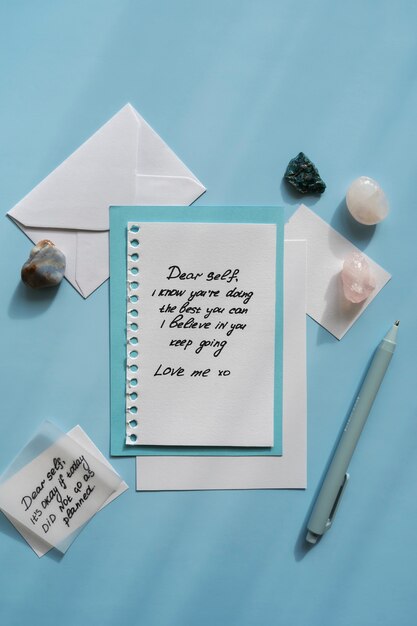 Dear self,
I know you're doing
the best you can
I believe in you
keep going
Love me xo
Dear self,
it's okay if today
DID NOT go as
planned